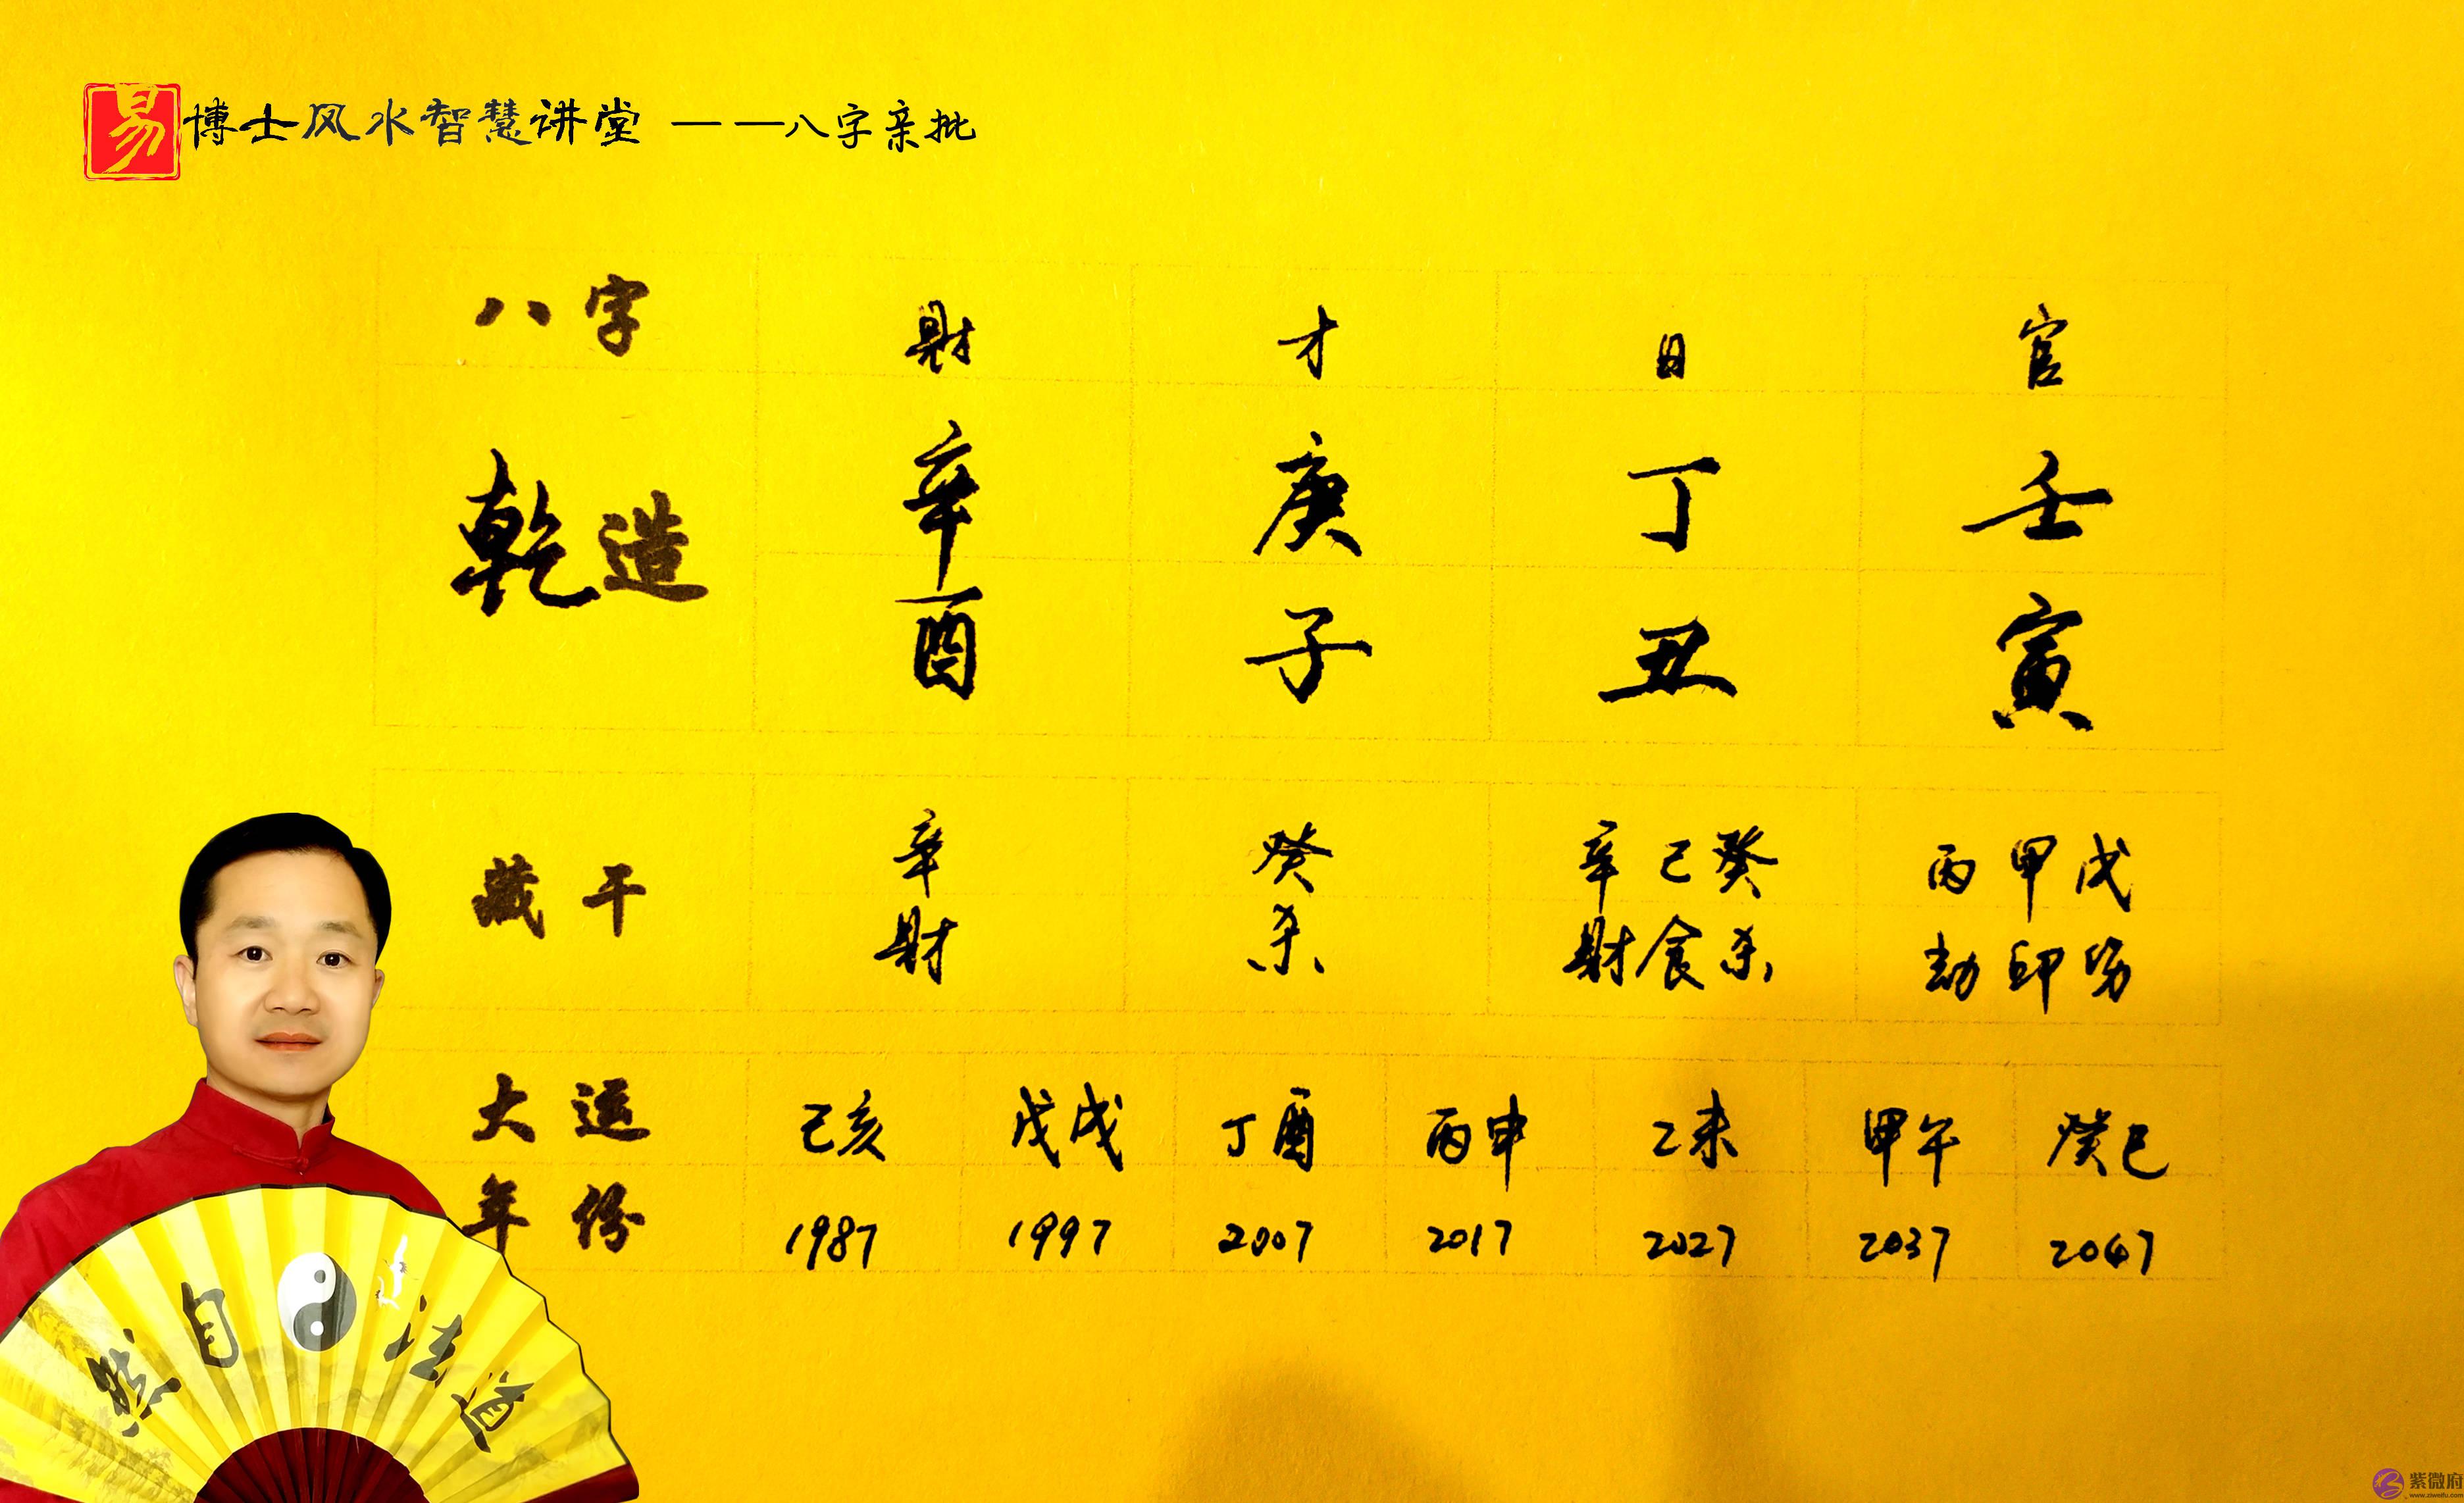 易博士风水智慧讲堂 ——八字亲批
八字 财 才 日 官
乾造 辛 庚 丁 壬
酉 子 丑 寅
藏干 辛 癸 辛己癸 丙甲戊
财 杀 财食杀 劫印伤
大运 己亥 戊戌 丁酉 丙申 乙未 甲午 癸巳
年份 1987 1997 2007 2017 2027 2037 2047
然自法道
紫微府
www.ziweifu.com